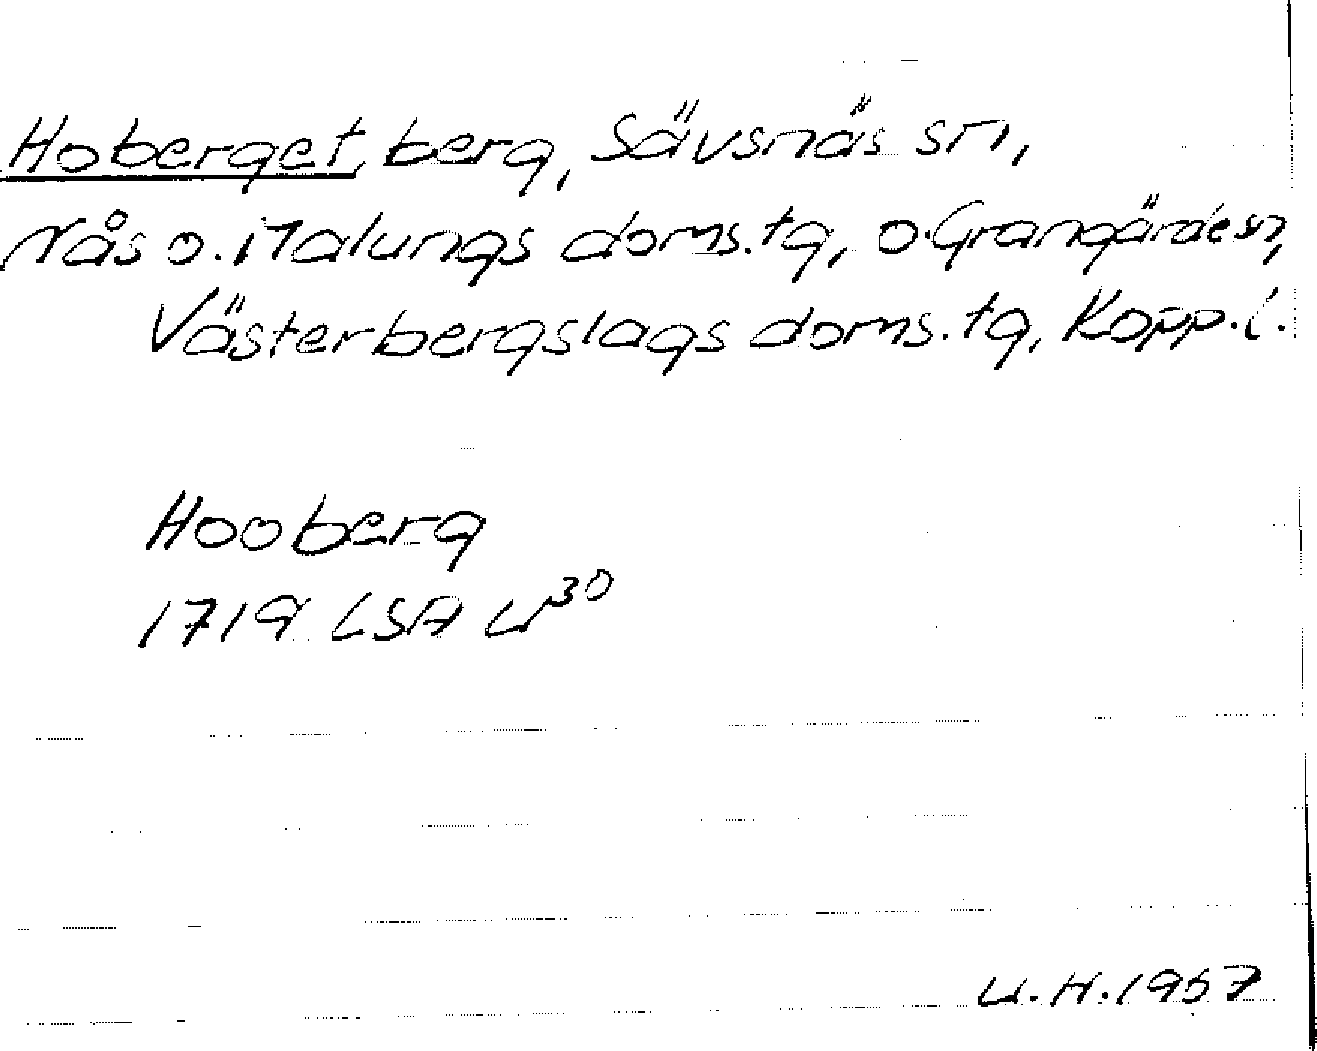 Hoberget, berg, Sävsnäs sn,
Nås o. Malungs doms.tg, o. Grangärde sn,
Västerbergslags doms.tg, Kopp.l.
Hooberg
1719 LSA U³⁰
U.H.1957